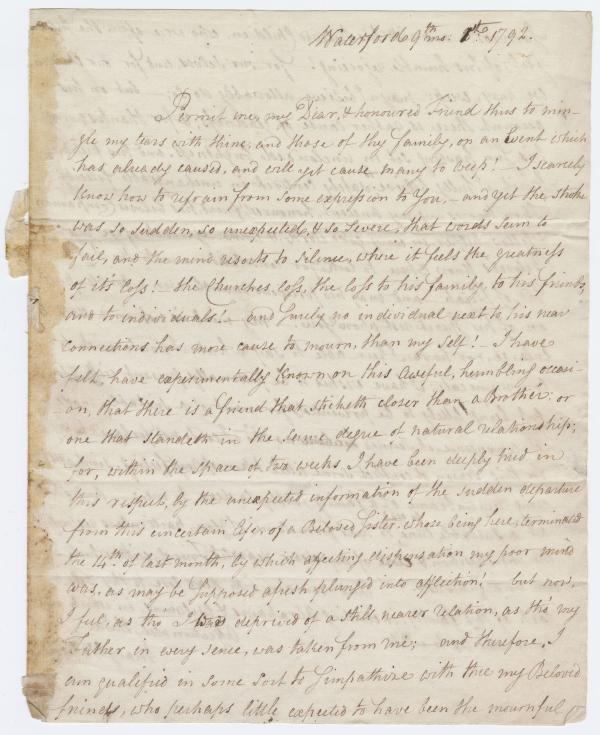 Waterford 9th mo: 1st 1792.
Permit me, my Dear, & honoured Friend thus to min-
gle my tears with thine, and those of thy family, on an Event which
has already caused, and will yet cause many to weep! - I scarcely
know how to refrain from some expression to You, - and yet the stroke
was, so sudden, so unexpected, & so severe, that words seem to
fail, and the mind resorts to silence, where it feels the greatness
of it's loss! - the Churches loss, the loss to his family, to his friends,
and to individuals! - and surely no individual next to his near
connections has more cause to mourn, than my self! - I have
felt, have experimentally known on this aweful, humbling occasi-
on, that there is a friend that sticketh closer than a Brother: or
one that standeth in the same degree of natural relationship;
for, within the space of two weeks I have been deeply tried in
this respect, by the unexpected information of the sudden departure
from this uncertain life, of a Beloved Sister, whose being here, terminated
the 14th of last month, by which affecting dispensation my poor mind
was, as may be supposed afresh plunged into affliction! - but now,
I feel, as tho' I was deprived of a still nearer relation, as tho' my
Father in every sence, was taken from me; and therefore, I
am qualified in some sort to simpathize with thee my Beloved
friends, who perhaps little expected to have been the mournful